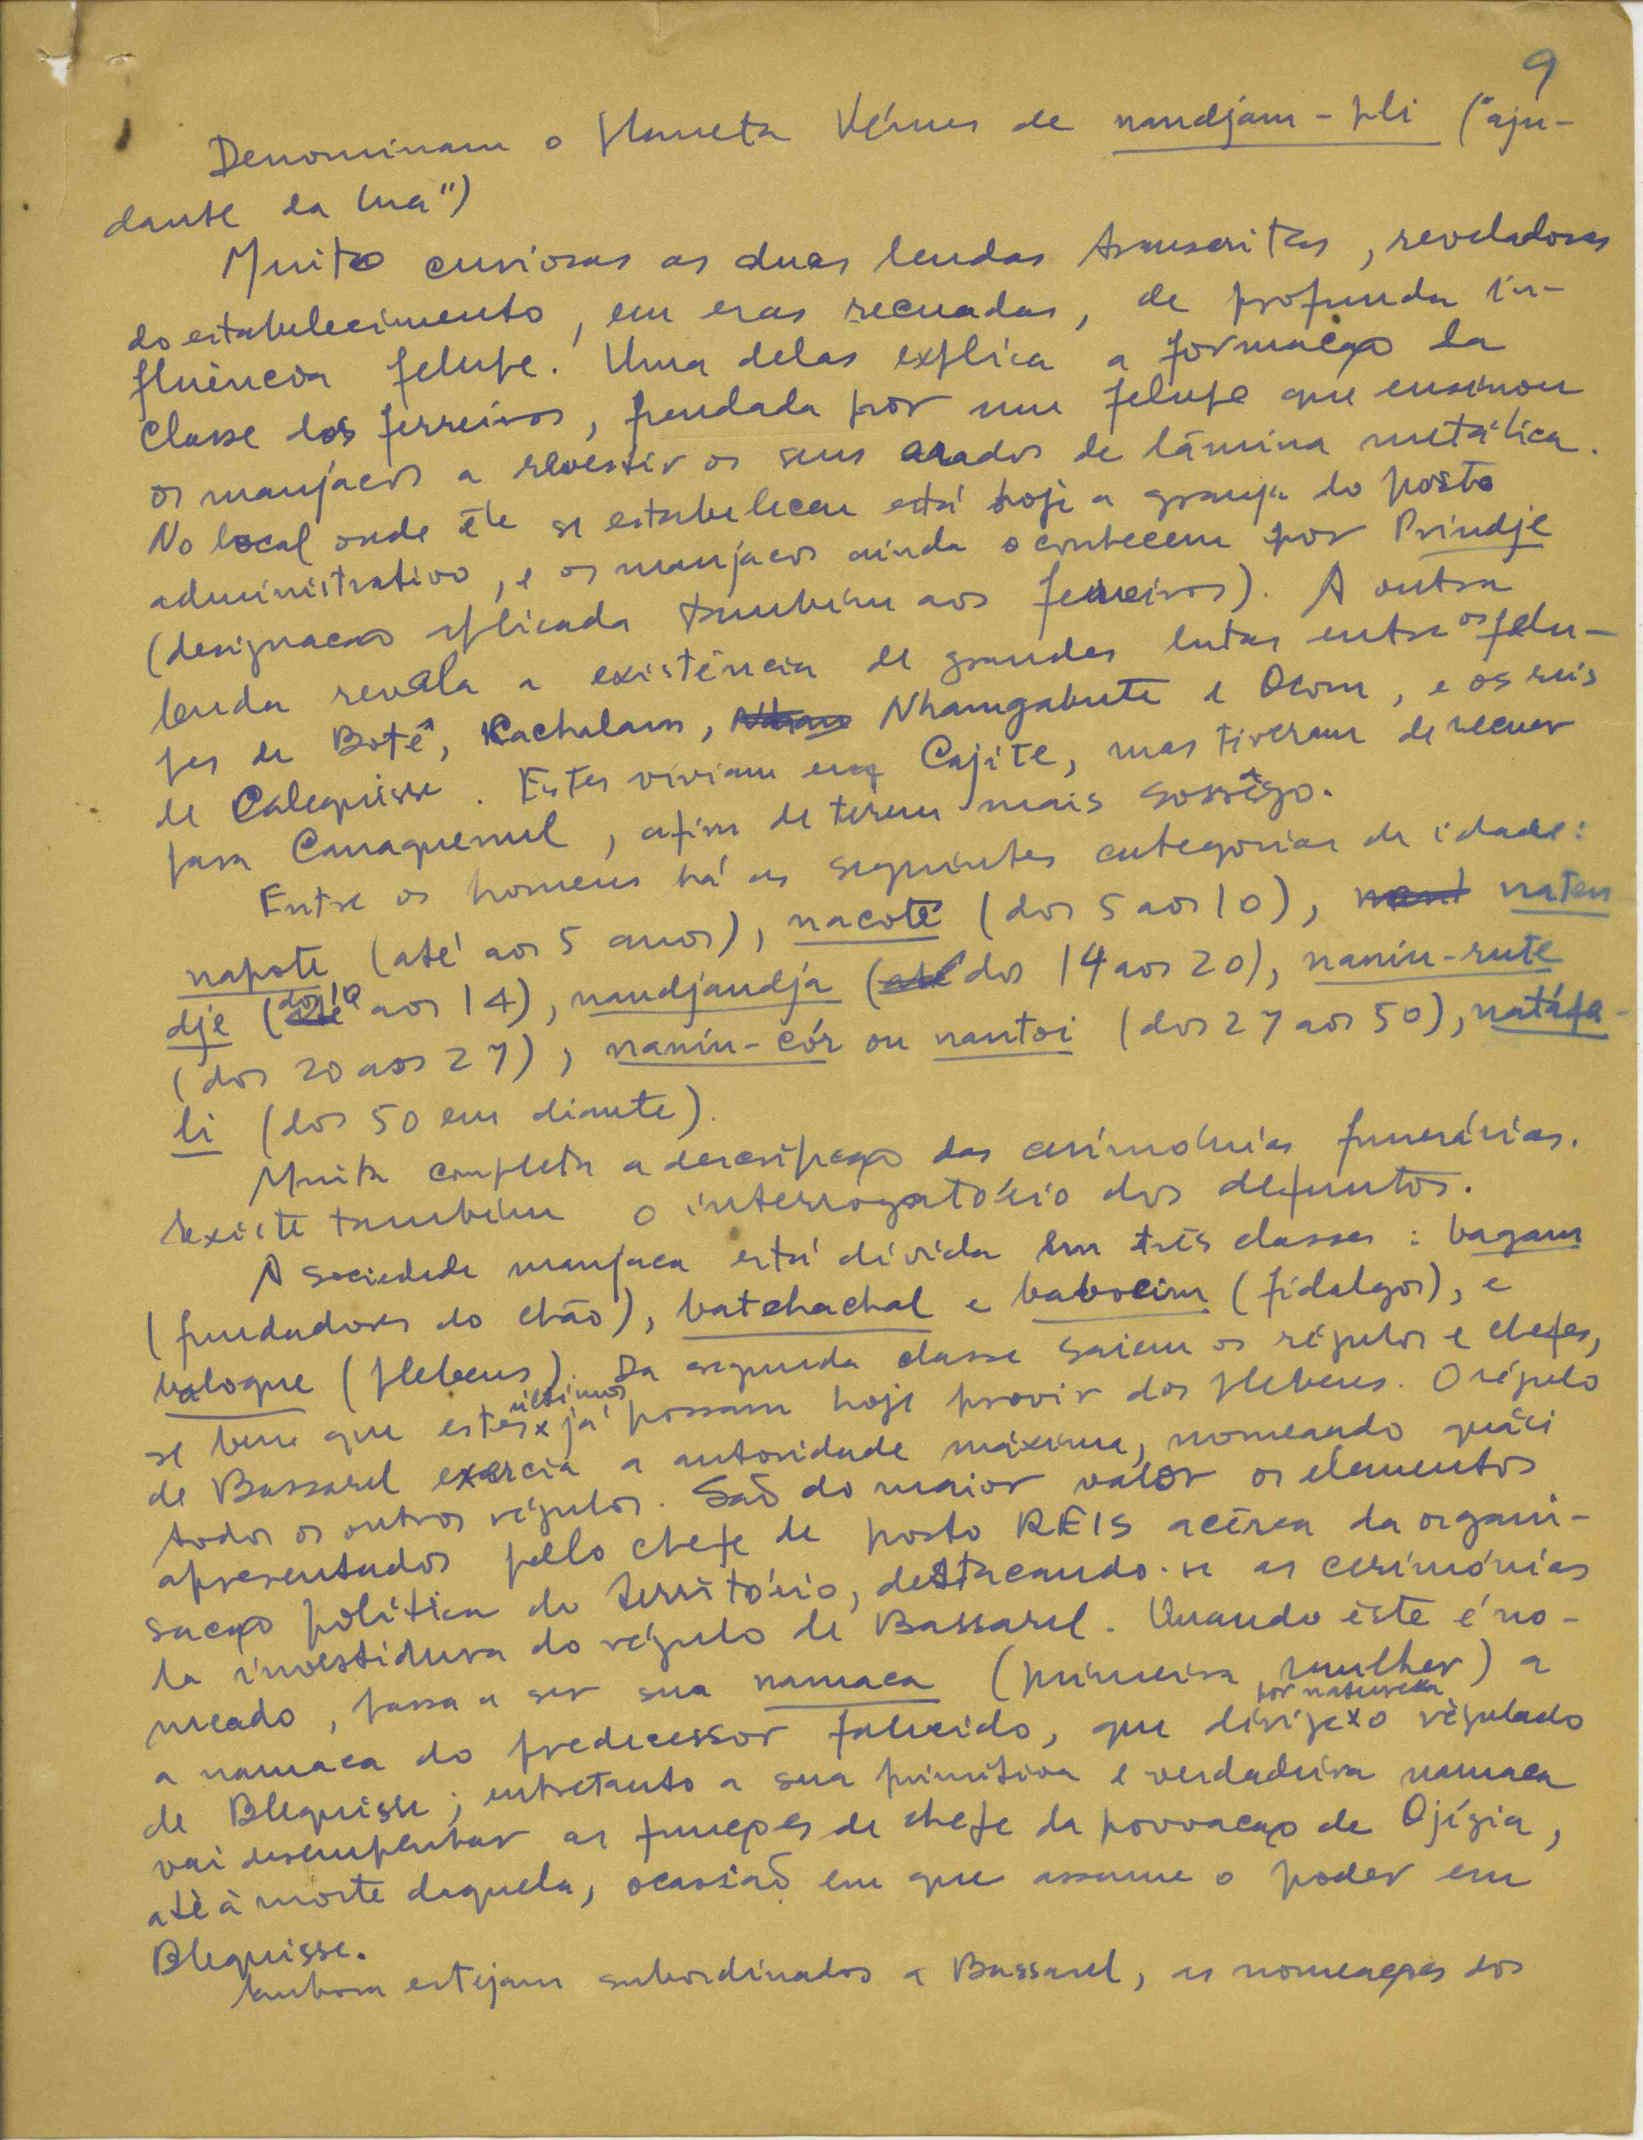 9
Denominam o planeta Vénus de nandjam-pli ("aju-
dante da lua")
Muito curiosas as duas lendas transcritas, reveladoras
do estabelecimento, em eras recuadas, de profunda in-
fluência felupe. Uma delas explica a formação da
classe dos ferreiros, fundada por um felupe que ensinou
os manjacos a revestir os seus arados de lâmina metálica.
No local onde êle se estabeleceu está hoje a granja do posto
administrativo, e os manjacos ainda o conhecem por Prindje
(designação aplicada também aos ferreiros). A outra
lenda revela a existência de grandes lutas entre os felu-
pes de Botê, Kachalam, Nhamgabute e Ocom, e os reis
de Calequisse. Estes viviam em Cajite, mas tiveram de recuar
para Canaquenul, afim de terem mais sossêgo.
Entre os homens há as seguintes categorias de idade:
napote (até aos 5 anos), nacoté (dos 5 aos 10), naten
dje (dos 10 aos 14), nandjandja (dos 14 aos 20), naniu-rute
(dos 20 aos 27), naniu-cór ou nantoi (dos 27 aos 50), natáfa-
li (dos 50 em diante).
Muito completa a descripção das cerimónias funerárias.
Existe também o interrogatório dos defuntos.
A sociedade manjaca está divida em três classes: bagam
(fundadores do chão), batchachal e babocim (fidalgos), e
baloque (plebeus). Da segunda classe saiem os régulos e chefes,
se bem que estes últimos já possam hoje provir dos plebeus. O régulo
de Bassarel exercia a autoridade máxima, nomeando quási
todos os outros régulos. São do maior valor os elementos
apresentados pelo chefe de posto REIS acêrca da organi-
sação política do território, destacando-se as cerimónias
da investidura do régulo de Bassarel. Quando êste é no-
meado, passa a ser sua namaca (primeira mulher) a
a namaca do predecessor falecido, que dirige por natureza o régulado
de Blequisse; entretanto a sua primitiva e verdadeira namaca
vai desempenhar as funções de chefe da povoação de Ojígia,
até à morte daquela, ocasião em que assume o poder em
Blequisse.
Embora estejam subordinados a Bassarel, as nomeações dos